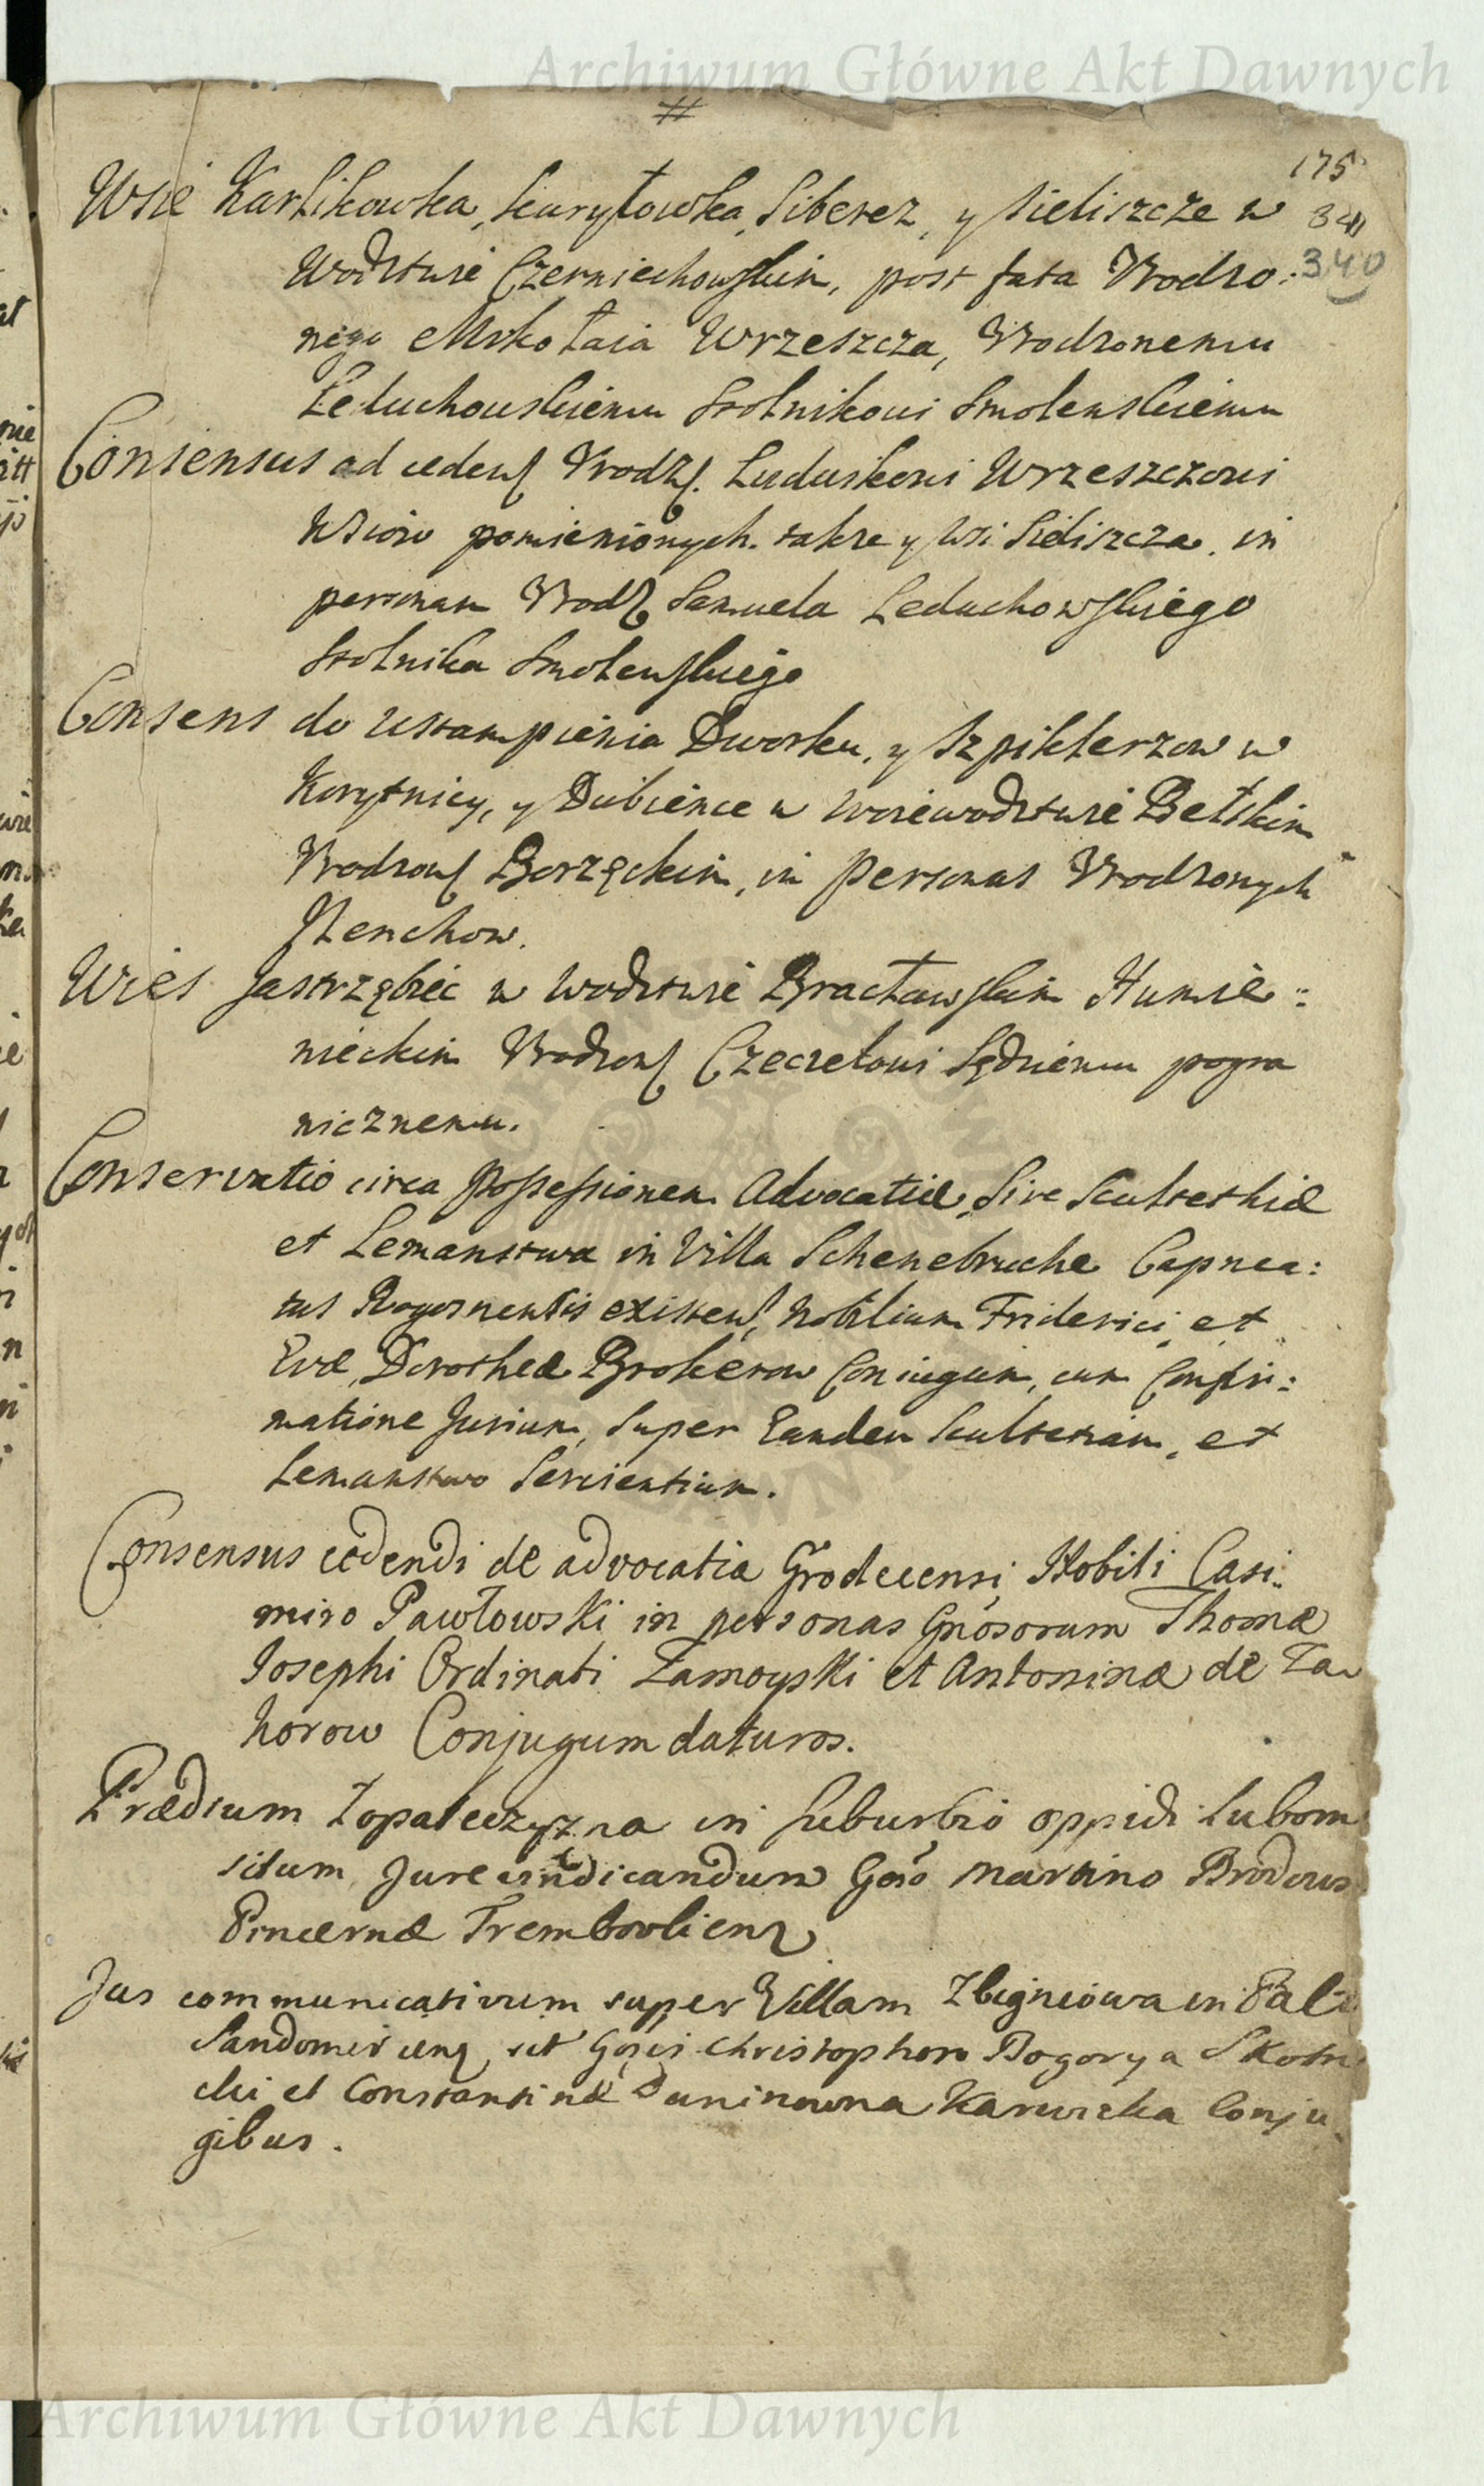 Archiwum Główne Akt Dawnych
#
175
341
340
Wsie Karlikowka, Kurylowka, Siberez, y Sieliszcze w
Wodztwie Czerniechowskim, post fata Urodzo:
nego Mikołaia Wrzeszcza, Urodzonemu
Leduchowskiemu Stolnikowi Smolenskiemu
Consensus ad cedend Urodz. Ludwikowi Wrzeszczowi
Wsiow pomienionych. takze y wsi Sieliszcza. in
personam Urodz Samuela Leduchowskiego
Stolnika Smolenskiego
Consens do ustampienia Dworku, y Szpiklerzow w
Korytnicy, y Dubience w woiewodztwie Bełskim
Urodzon Borzęckim, in personas Urodzonych
Wies Jastrzębiec w Wodztwie Bracławskim Humie:
nieckim Urodzon Czeczelowi Sędziemu pogra
nicznemu.
Conservatio circa Possessionem Advocatiæ, Sive Scultethiæ
et Lemanstwa in Villa Schenebruche Capnea:
tus Rogosnensis existen, Nobilium Friderici et
Evæ, Dorotheæ Brokerow Coniugum, cum Confir:
matione Jurium, Super Eandem Scultetiam, et
Lemanstwo Servientium.
Consensus cedendi de advocatia Grodecensi Nobili Casi:
miro Pawłowski in personas Gnosorum Thomæ
Josephi Ordinati Zamoyski et Antoninæ de Za
horow Conjugum daturos.
Prædium Lopatecczyzna in Suburbio oppidi Lubom
situm, Jure vindicandum Gnso Martino Brodows
Pincernæ Trembovliens
Jus communicativum super Villam Zbigniowa in Pal:
Sandomiriens, sit Gnsis Christophoro Bogorya Skotni
cki et Constantinæ Duninowna Karwicka Conju
gibus.
Archiwum Główne Akt Dawnych